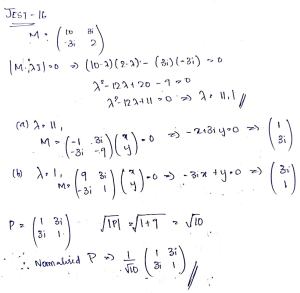 JEST-16
M = ( 10 3i
-3i 2 )
|M-λI|=0 ⇒ (10-λ)(2-λ) - (3i)(-3i) = 0
λ²-12λ+20 - 9 = 0
λ²-12λ+11 = 0 ⇒ λ = 11, 1
(a) λ = 11,
M = ( -1 3i
-3i -9 ) ( x
y ) = 0 ⇒ -x+3iy=0 ⇒ ( 1
3i )
(b) λ = 1,
M = ( 9 3i
-3i 1 ) ( x
y ) = 0 ⇒ -3ix + y = 0 ⇒ ( 3i
1 )
P = ( 1 3i
3i 1 ) √|P| = √1+9 = √10
∴ Normalised P ⇒ 1/√10 ( 1 3i
3i 1 )